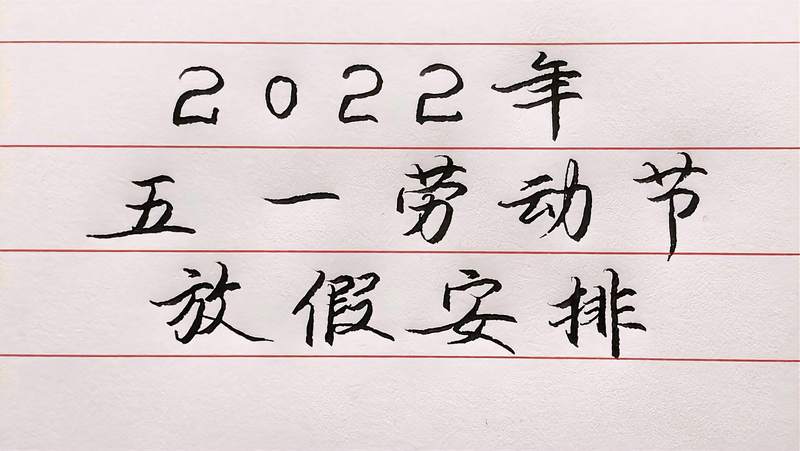 2022年
五一劳动节
放假安排